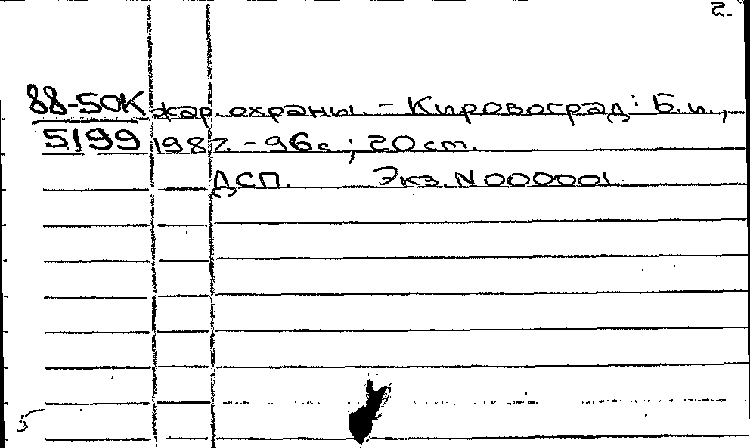 2.
88-50К жар. охраны. - Кировоград: Б.и.,
5199 1987. - 96с.; 20 см.
ДСП. Экз. N000001
5